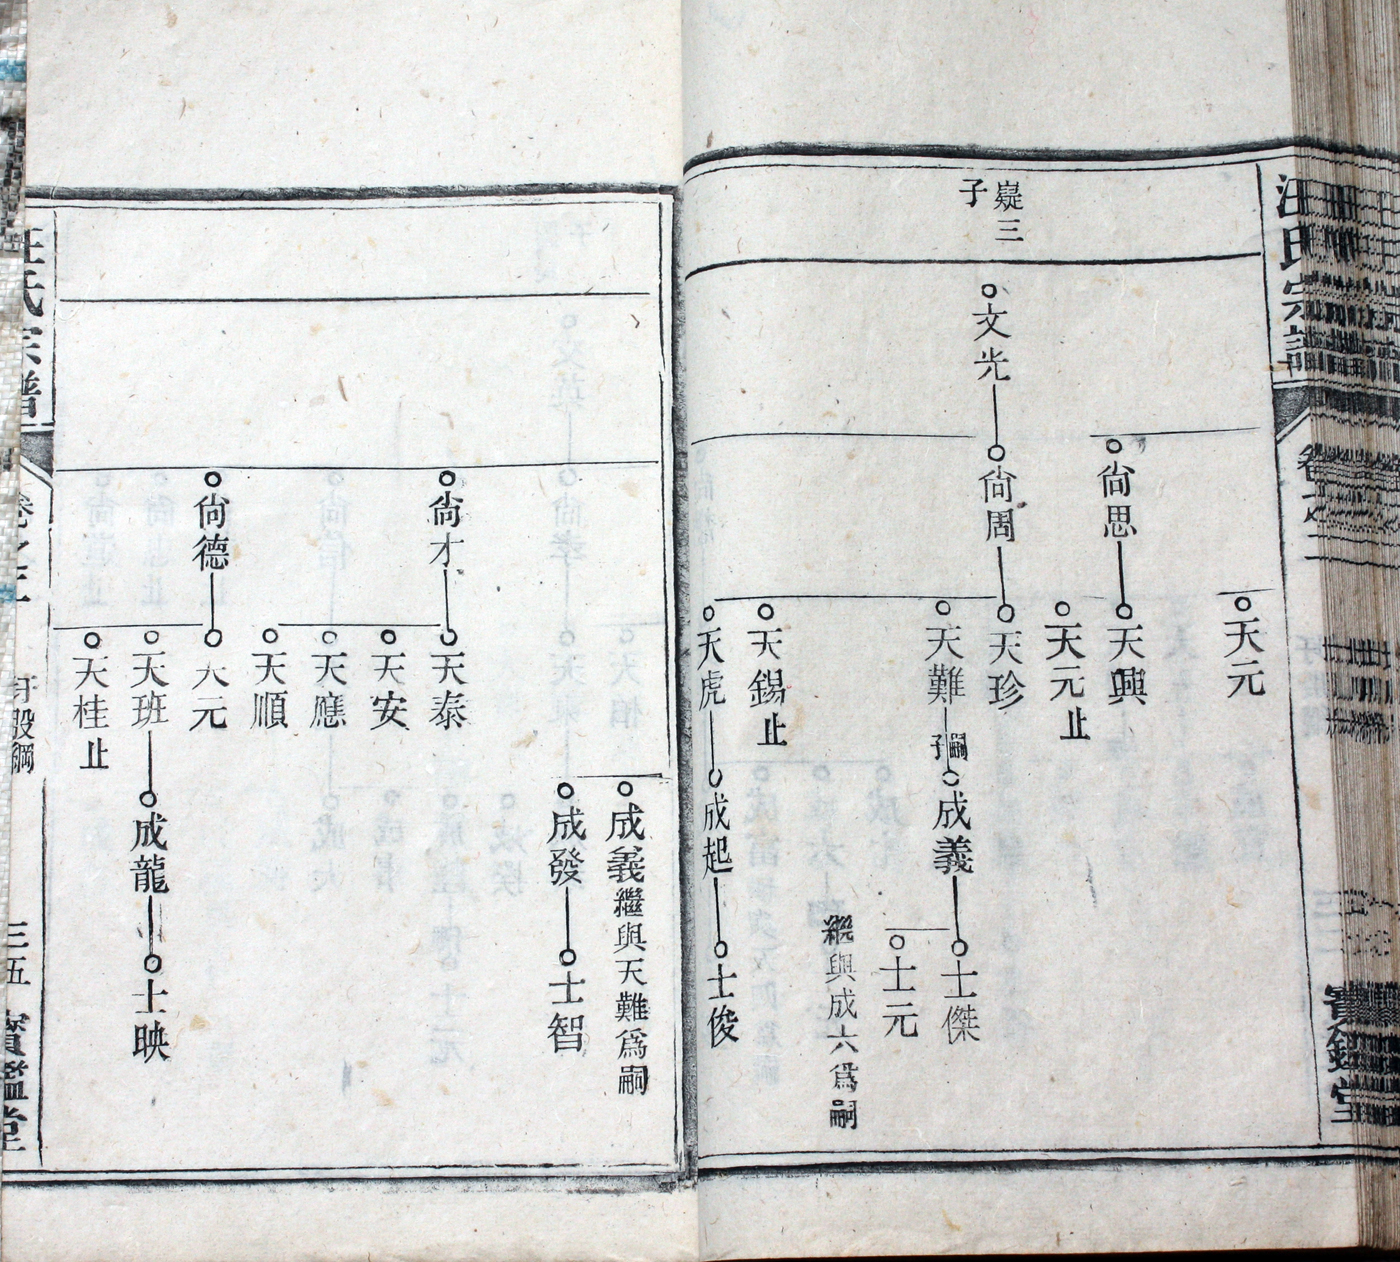 汪氏宗譜
卷之二
寶鑑堂
嶷三
子
天元
尙思
天興
天元止
文光
尙周
天珍
天難
嗣
成義
士傑
士元
繼與成六爲嗣
天錫止
天虎
成起
士俊
成義繼與天難爲嗣
成發
士智
尙才
天泰
天安
天應
天順
尙德
天元
天班
成龍
士映
天桂止
汪氏宗譜
卷之二
三五
寶鑑堂